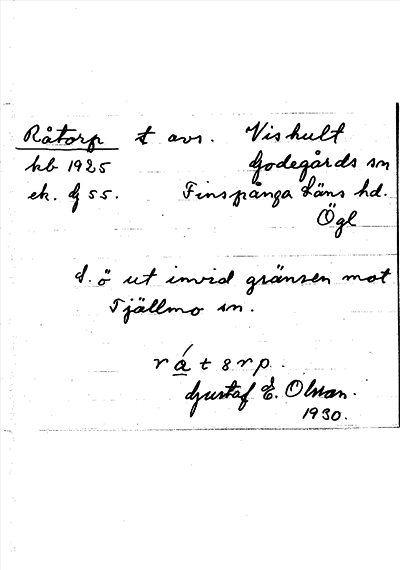 Råtorp t avs. Vishult
kb 1925 Godegårds sn
ek. G 55. Finspånga läns hd.
Ögl
L. ö ut invid gränsen mot
Tjällmo sn.
rátsrp.
Gustaf E. Olsson.
1930.